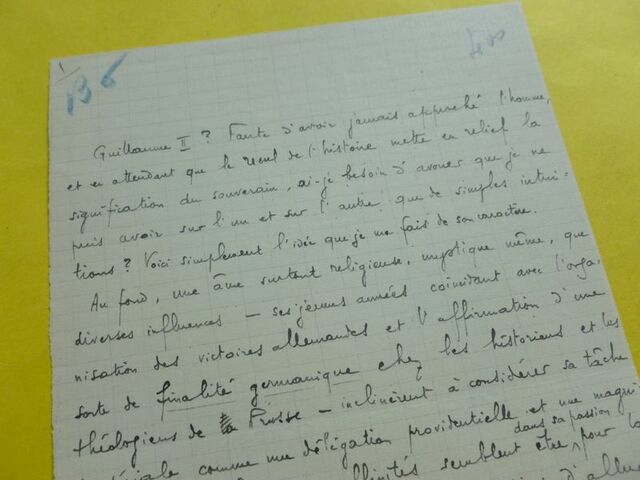 B6
Guillaume II ? Faute d'avoir jamais approché l'homme,
et en attendant que le recul de l'histoire mette en relief la
signification du souverain, ai-je besoin d'avouer que je ne
puis avoir sur l'un et sur l'autre que de simples intui-
tions ? Voici simplement l'idée que je me fais de son caractère.
Au fond, une âme surtout religieuse, mystique même, que
diverses influences – ses jeunes années coïncidant avec l'orga-
nisation des victoires allemandes et l'affirmation d'une
sorte de finalité germanique chez les historiens et les
théologiens de Prusse – inclinèrent à considérer sa tâche
comme une délégation providentielle et une magni
dans sa passion
semblent être pour la